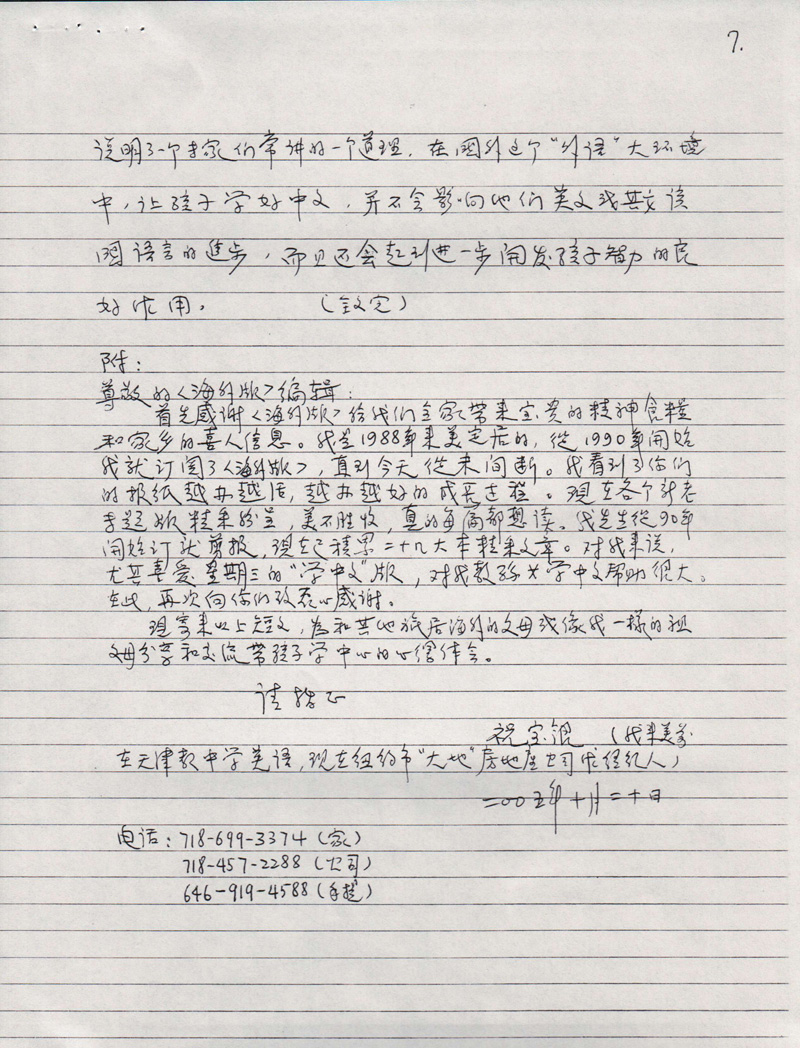 7.
说明了一个专家们常讲的一个道理，在国外这个“外语”大环境
中，让孩子学好中文，并不会影响他们英文或其它该
国语言的进步，而且还会起到进一步开发孩子智力的良
好作用。（全文完）
附：
尊敬的《海外版》编辑：
首先感谢《海外版》给我们全家带来宝贵的精神食粮
和家乡的喜人信息。我是1988年来美定居的，从1990年开始
我就订阅了《海外版》，直到今天从未间断。我看到了你们
的报纸越办越活，越办越好的成长过程。现在各个新老
专题版精采纷呈，美不胜收，真的每篇都想读。我先生从90年
开始订就剪报，现在已积累二十几大本精采文章。对我来说，
尤其喜爱星期三的“学中文”版，对我教孙女学中文帮助很大。
在此，再次向你们致衷心感谢。
现寄来以上短文，为和其他旅居海外的父母或像我一样的祖
父母分享和交流带孩子学中心的心得体会。
请指正
祝宝锟（我来美前
在天津教中学英语，现在纽约市“大地”房地产公司作经纪人）
二〇〇五年十月二十日
电话：718-699-3374（家）
718-457-2288（公司）
646-919-4588（手提）